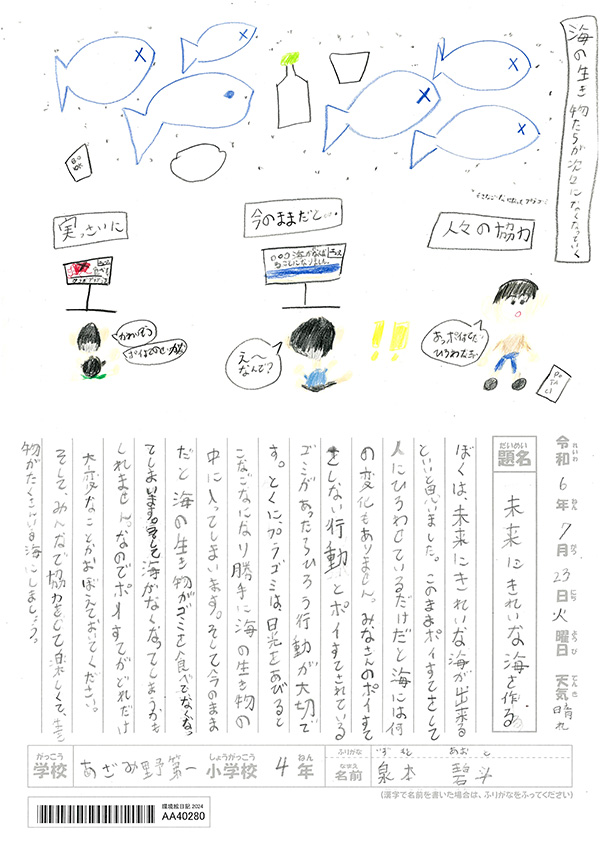 海の生き物たちが次々になくなっていく
実っさいに
今のままだと…
人々の協力
かわいそう
ポイすてのせいだ
え〜なんで?
あっポイすてだ
ひろわなきゃ
POTACI
!!
令和6年7月23日火曜日 天気 晴れ
題名 未来にきれいな海を作る
ぼくは、未来にきれいな海が出来る
といいと思いました。このままポイすてをして
人にひろわせているだけだと海には何
の変化もありません。みなさんのポイすて
をしない行動とポイすてされている
ゴミがあったらひろう行動が大切で
す。とくに、プラゴミは、日光をあびると
こなごなになり勝手に海の生き物の
中に入ってしまいます。そして今のまま
だと海の生き物がゴミを食べてなくなっ
てしまいます。そして海がなくなってしまうかも
しれません。なのでポイすてがどれだけ
大変なことかおぼえておいてください。
そして、みんなで協力をして楽しくて、生き
物がたくさんいる海にしましょう。
学校 あざみ野第一小学校 4年 名前 泉本 碧斗
(漢字で名前を書いた場合は、ふりがなをふってください)
環境絵日記 2024
AA40280